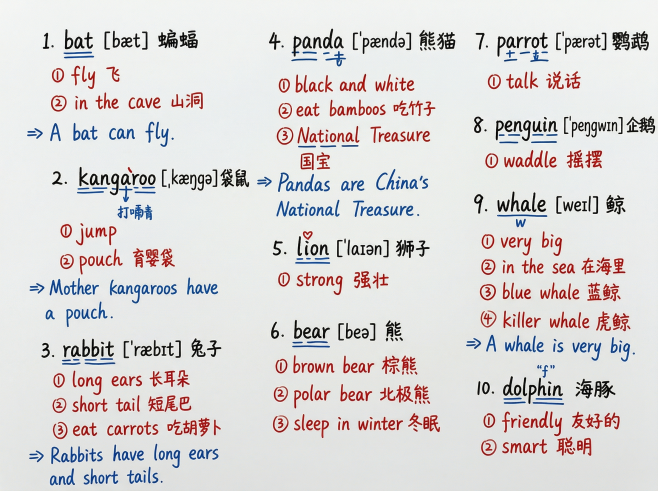 1. bat [bæt] 蝙蝠
① fly 飞
② in the cave 山洞
⇒ A bat can fly.
2. kangaroo [ˌkæŋgə] 袋鼠
① jump
② pouch 育婴袋
⇒ Mother kangaroos have
a pouch.
3. rabbit ['ræbɪt] 兔子
① long ears 长耳朵
② short tail 短尾巴
③ eat carrots 吃胡萝卜
⇒ Rabbits have long ears
and short tails.
4. panda ['pændə] 熊猫
① black and white
② eat bamboos 吃竹子
③ National Treasure
国宝
⇒ Pandas are China's
National Treasure.
5. lion ['laɪən] 狮子
① strong 强壮
6. bear [beə] 熊
① brown bear 棕熊
② polar bear 北极熊
③ sleep in winter 冬眠
7. parrot ['pærət] 鹦鹉
① talk 说话
8. penguin ['peŋgwɪn] 企鹅
① waddle 摇摆
9. whale [weɪl] 鲸
w
① very big
② in the sea 在海里
③ blue whale 蓝鲸
④ killer whale 虎鲸
⇒ A whale is very big.
"f"
10. dolphin 海豚
① friendly 友好的
② smart 聪明